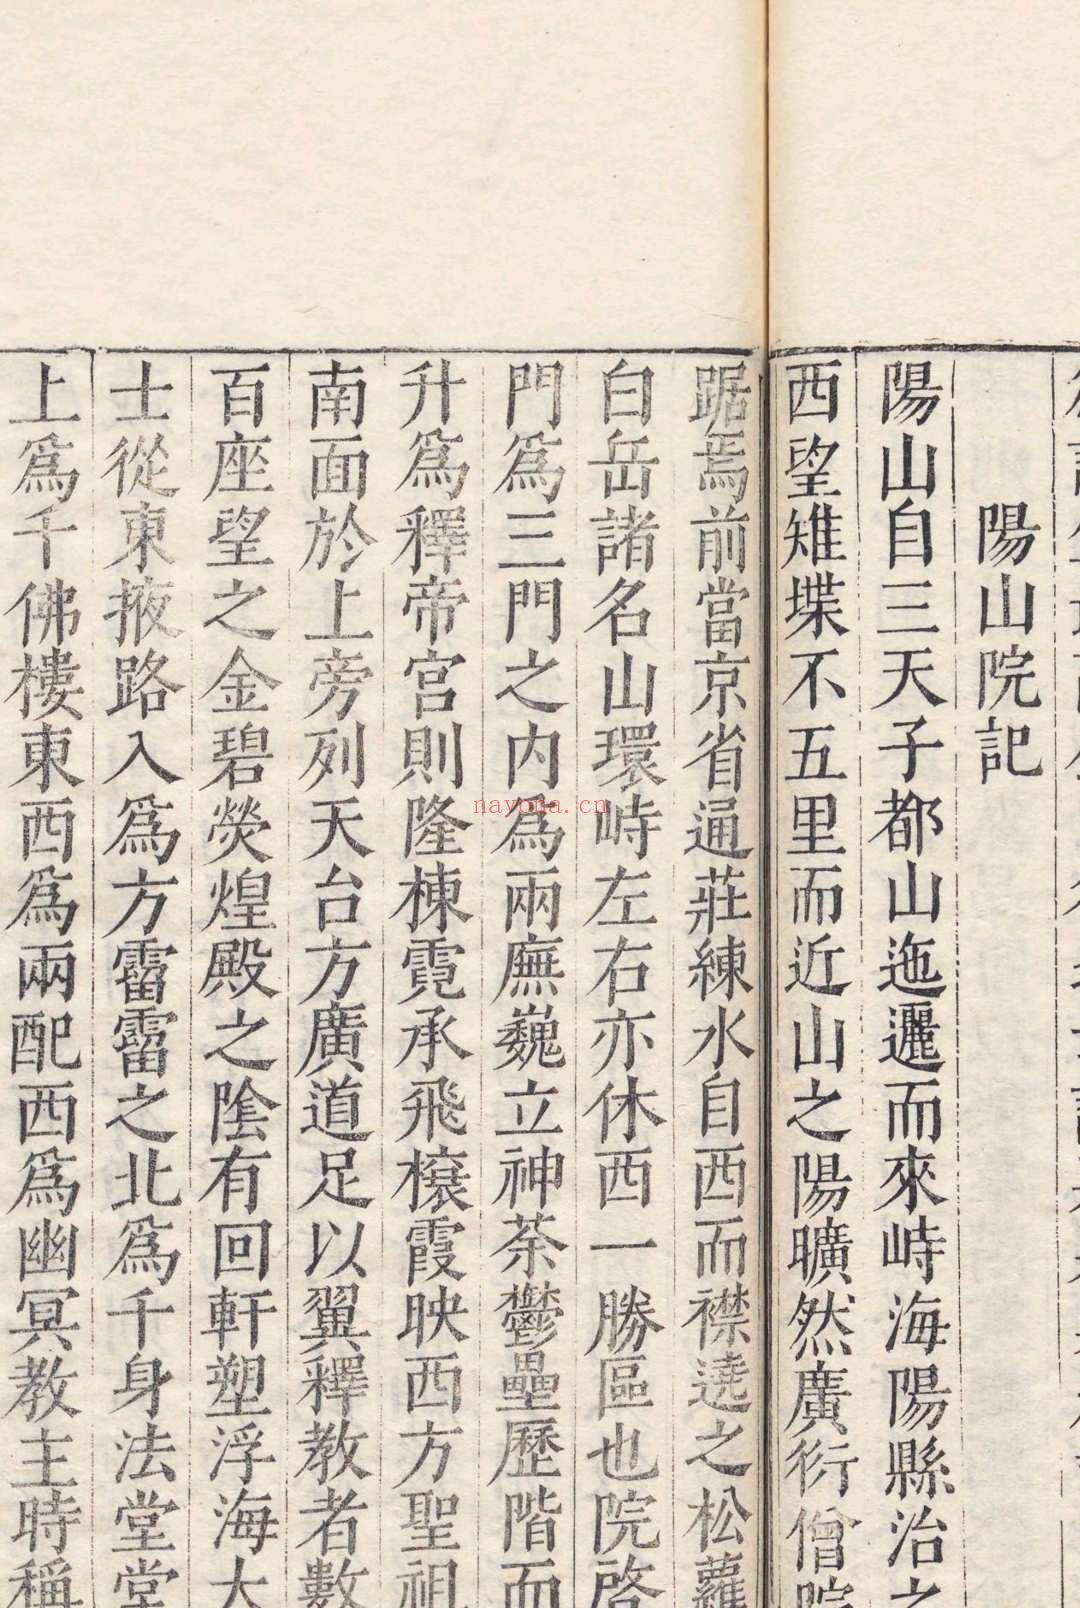 陽山院記
陽山自三天子都山迤邐而來峙海陽縣治之
西望雉堞不五里而近山之陽曠然廣衍僧院
踞焉前當京省通莊練水自西而襟遶之松蘿
白岳諸名山環峙左右亦休西一勝區也院啓
門爲三門之内爲兩廡巍立神荼鬱壘歷階而
升爲釋帝宮則隆棟霓承飛榱霞映西方聖祖
南面於上旁列天台方廣道足以翼釋教者數
百座望之金碧熒煌殿之陰有回軒塑浮海大
士從東掖路入爲方霤霤之北爲千身法堂堂
上爲千佛樓東西爲兩配西爲幽冥教主時稱
nayona.cn